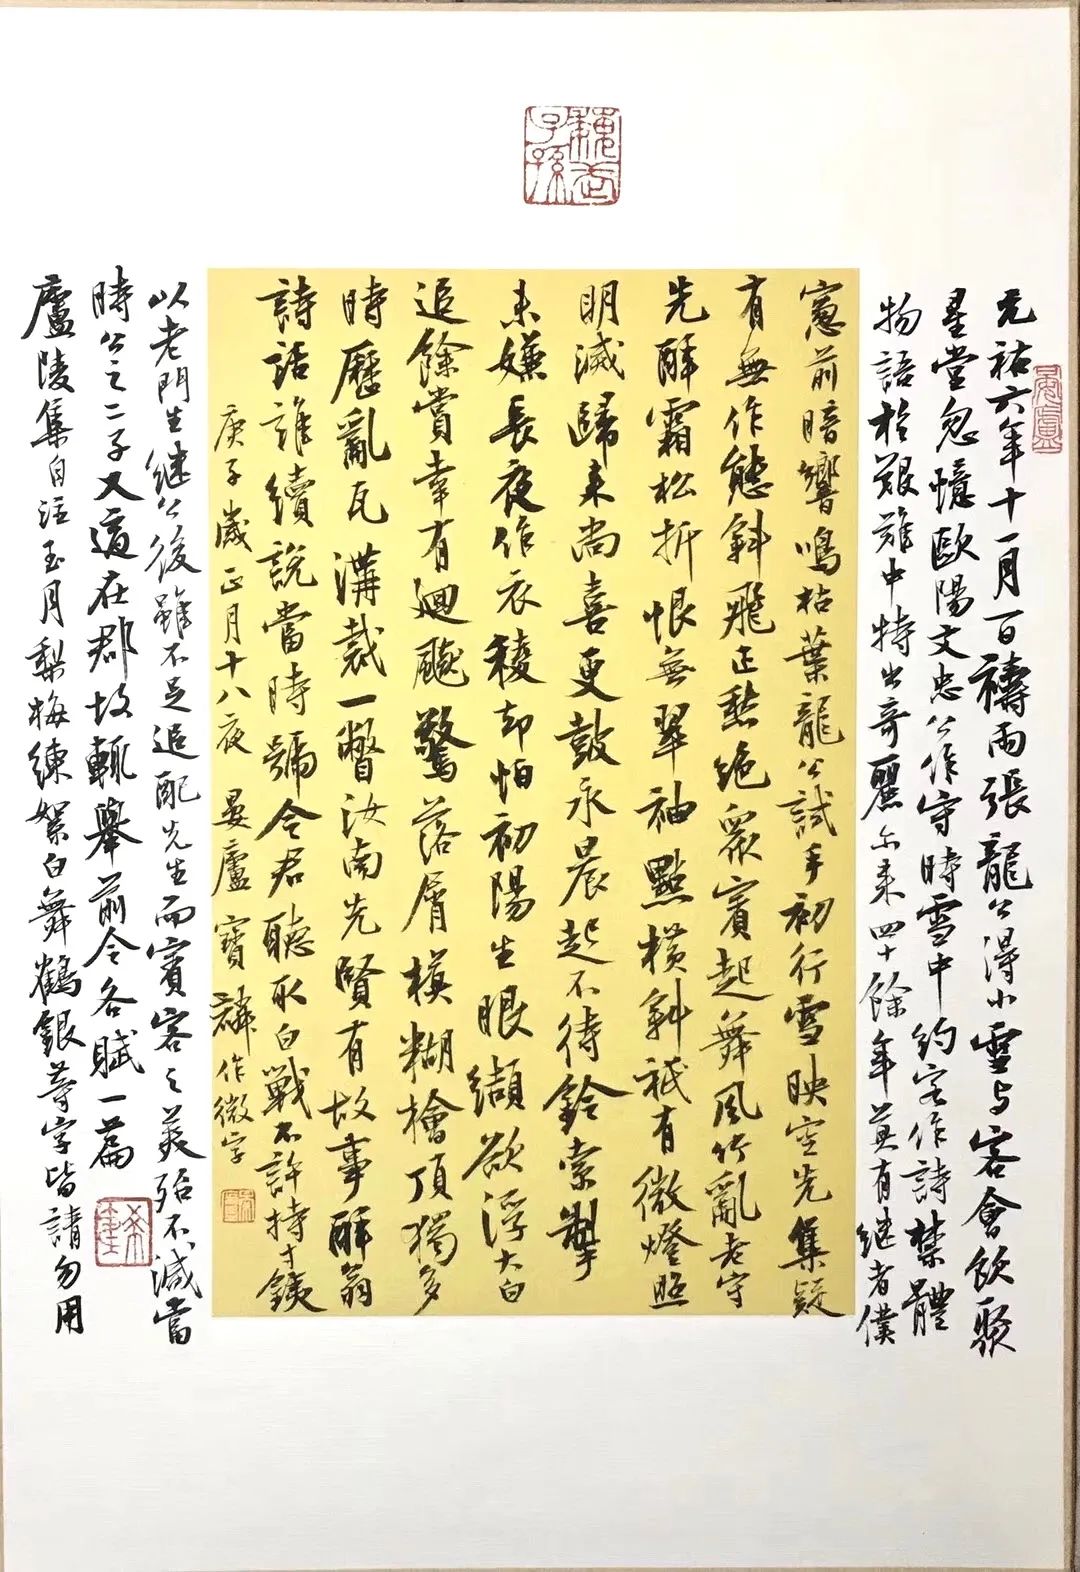 元祐六年十一月一日禱雨張龍公得小雪与客會飲聚
星堂忽憶歐陽文忠公作守時雪中約客作詩禁體
物語於艱難中特出奇麗尓来四十餘年莫有继者僕
窓前暗響鳴枯葉龍公試手初行雪映空先集疑
有無作態斜飛正愁絶衆賓起舞風竹亂老守
先醉霜松折恨無翠袖點橫斜祇有微燈照
明滅歸来尚喜更鼓永晨起不待鈴索掣
未嫌長夜作衣稜却怕初陽生眼纈欲浮大白
追餘賞幸有廻飇驚落屑模糊檜頂獨多
時歷亂瓦溝裁一瞥汝南先賢有故事醉翁
詩話誰續說當時號令君聽取白戰不許持寸鐵
庚子歲正月十八夜 晏廬寶作微字
以老門生继公後雖不足追配先生而賓客之美殆不減當
時公之二子又適在郡故輒舉前令各賦一篇
廬陵集自注玉月梨梅練絮白舞鶴銀等字皆請勿用